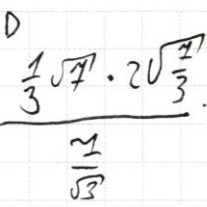 D
\frac{\frac{1}{3}\sqrt{7} \cdot 2\sqrt{\frac{7}{3}}}{\frac{1}{\sqrt{3}}}.